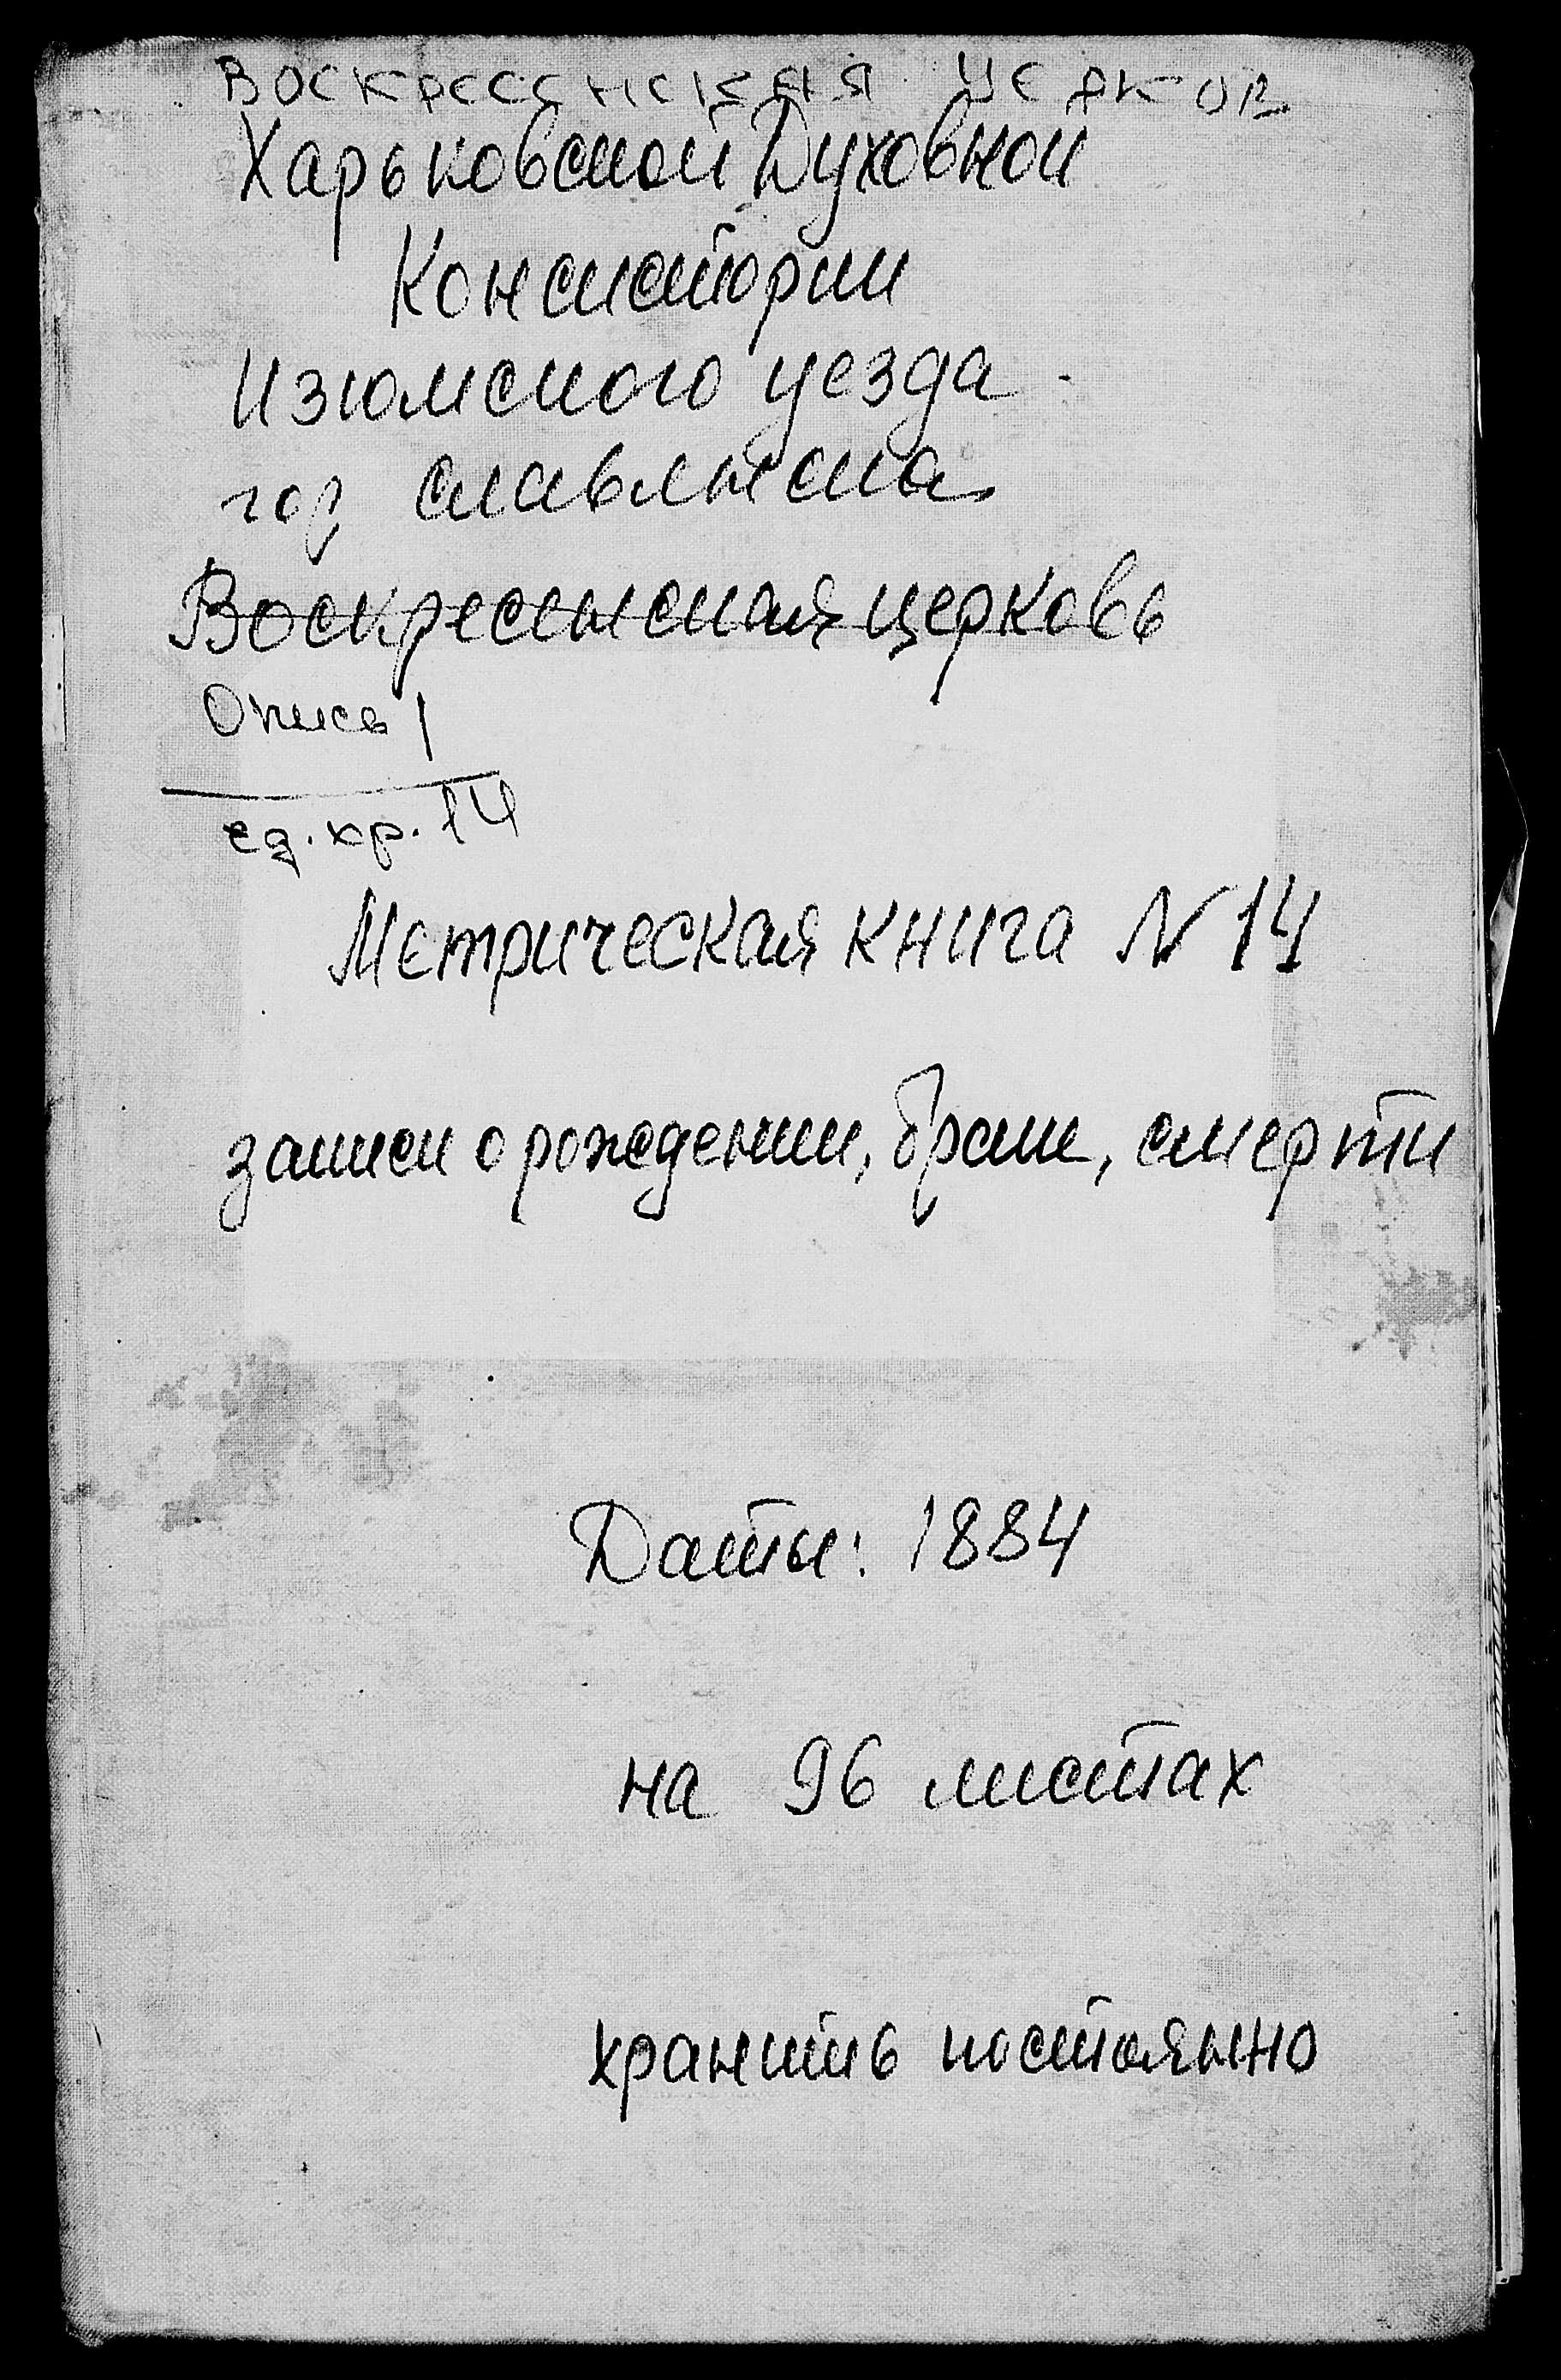 Воскресенская церков
Харьковской Духовной
Консистории
Изюмского уезда
гор Славянска
Воскресенская церковь
Опись 1
ед. хр. 14
Метрическая книга N 14
записи о рождении, браке, смерти
Даты: 1884
на 96 листах
хранить постоянно